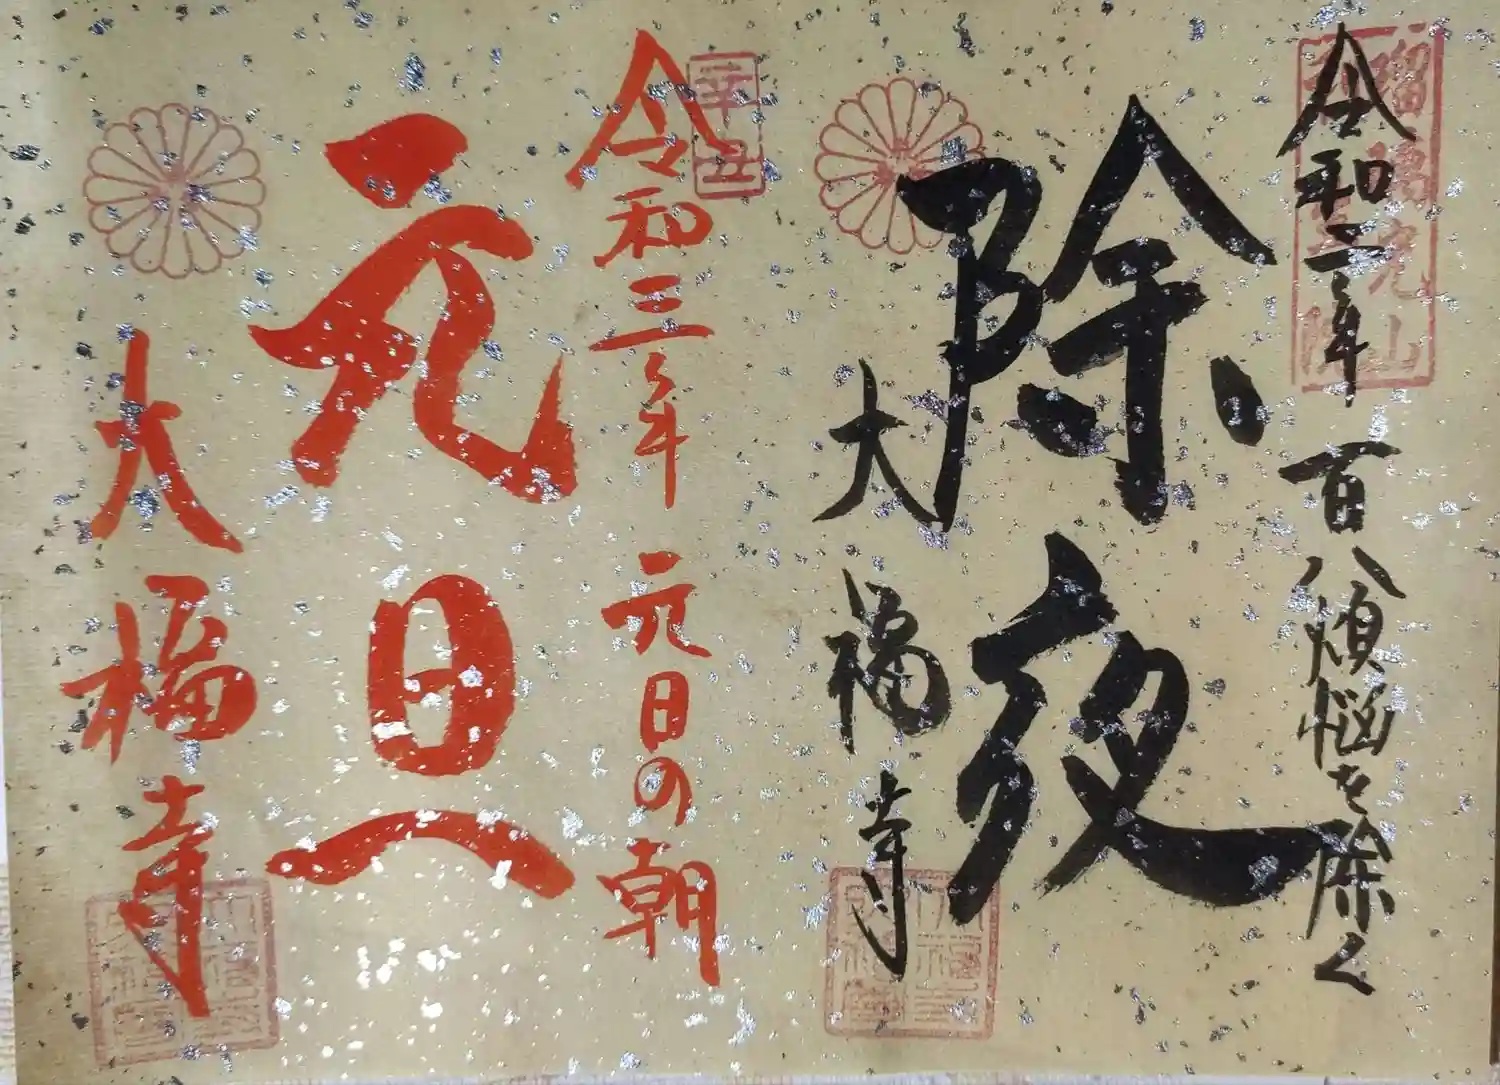 令和二年 百八煩悩を除く
除夜
大福寺
令和三年 元日の朝
辛丑
元旦
大福寺